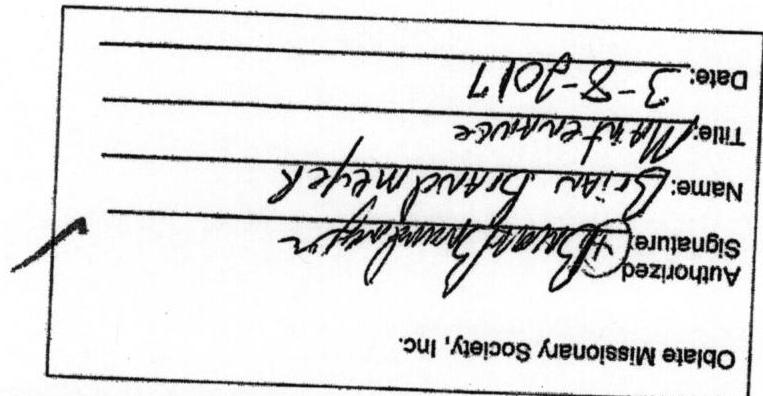 Oblate Missionary Society, Inc.
Authorized
Signature: Brian Brandmeyer
Name: Brian Brandmeyer
Title: Maintenance
Date: 3-8-2017